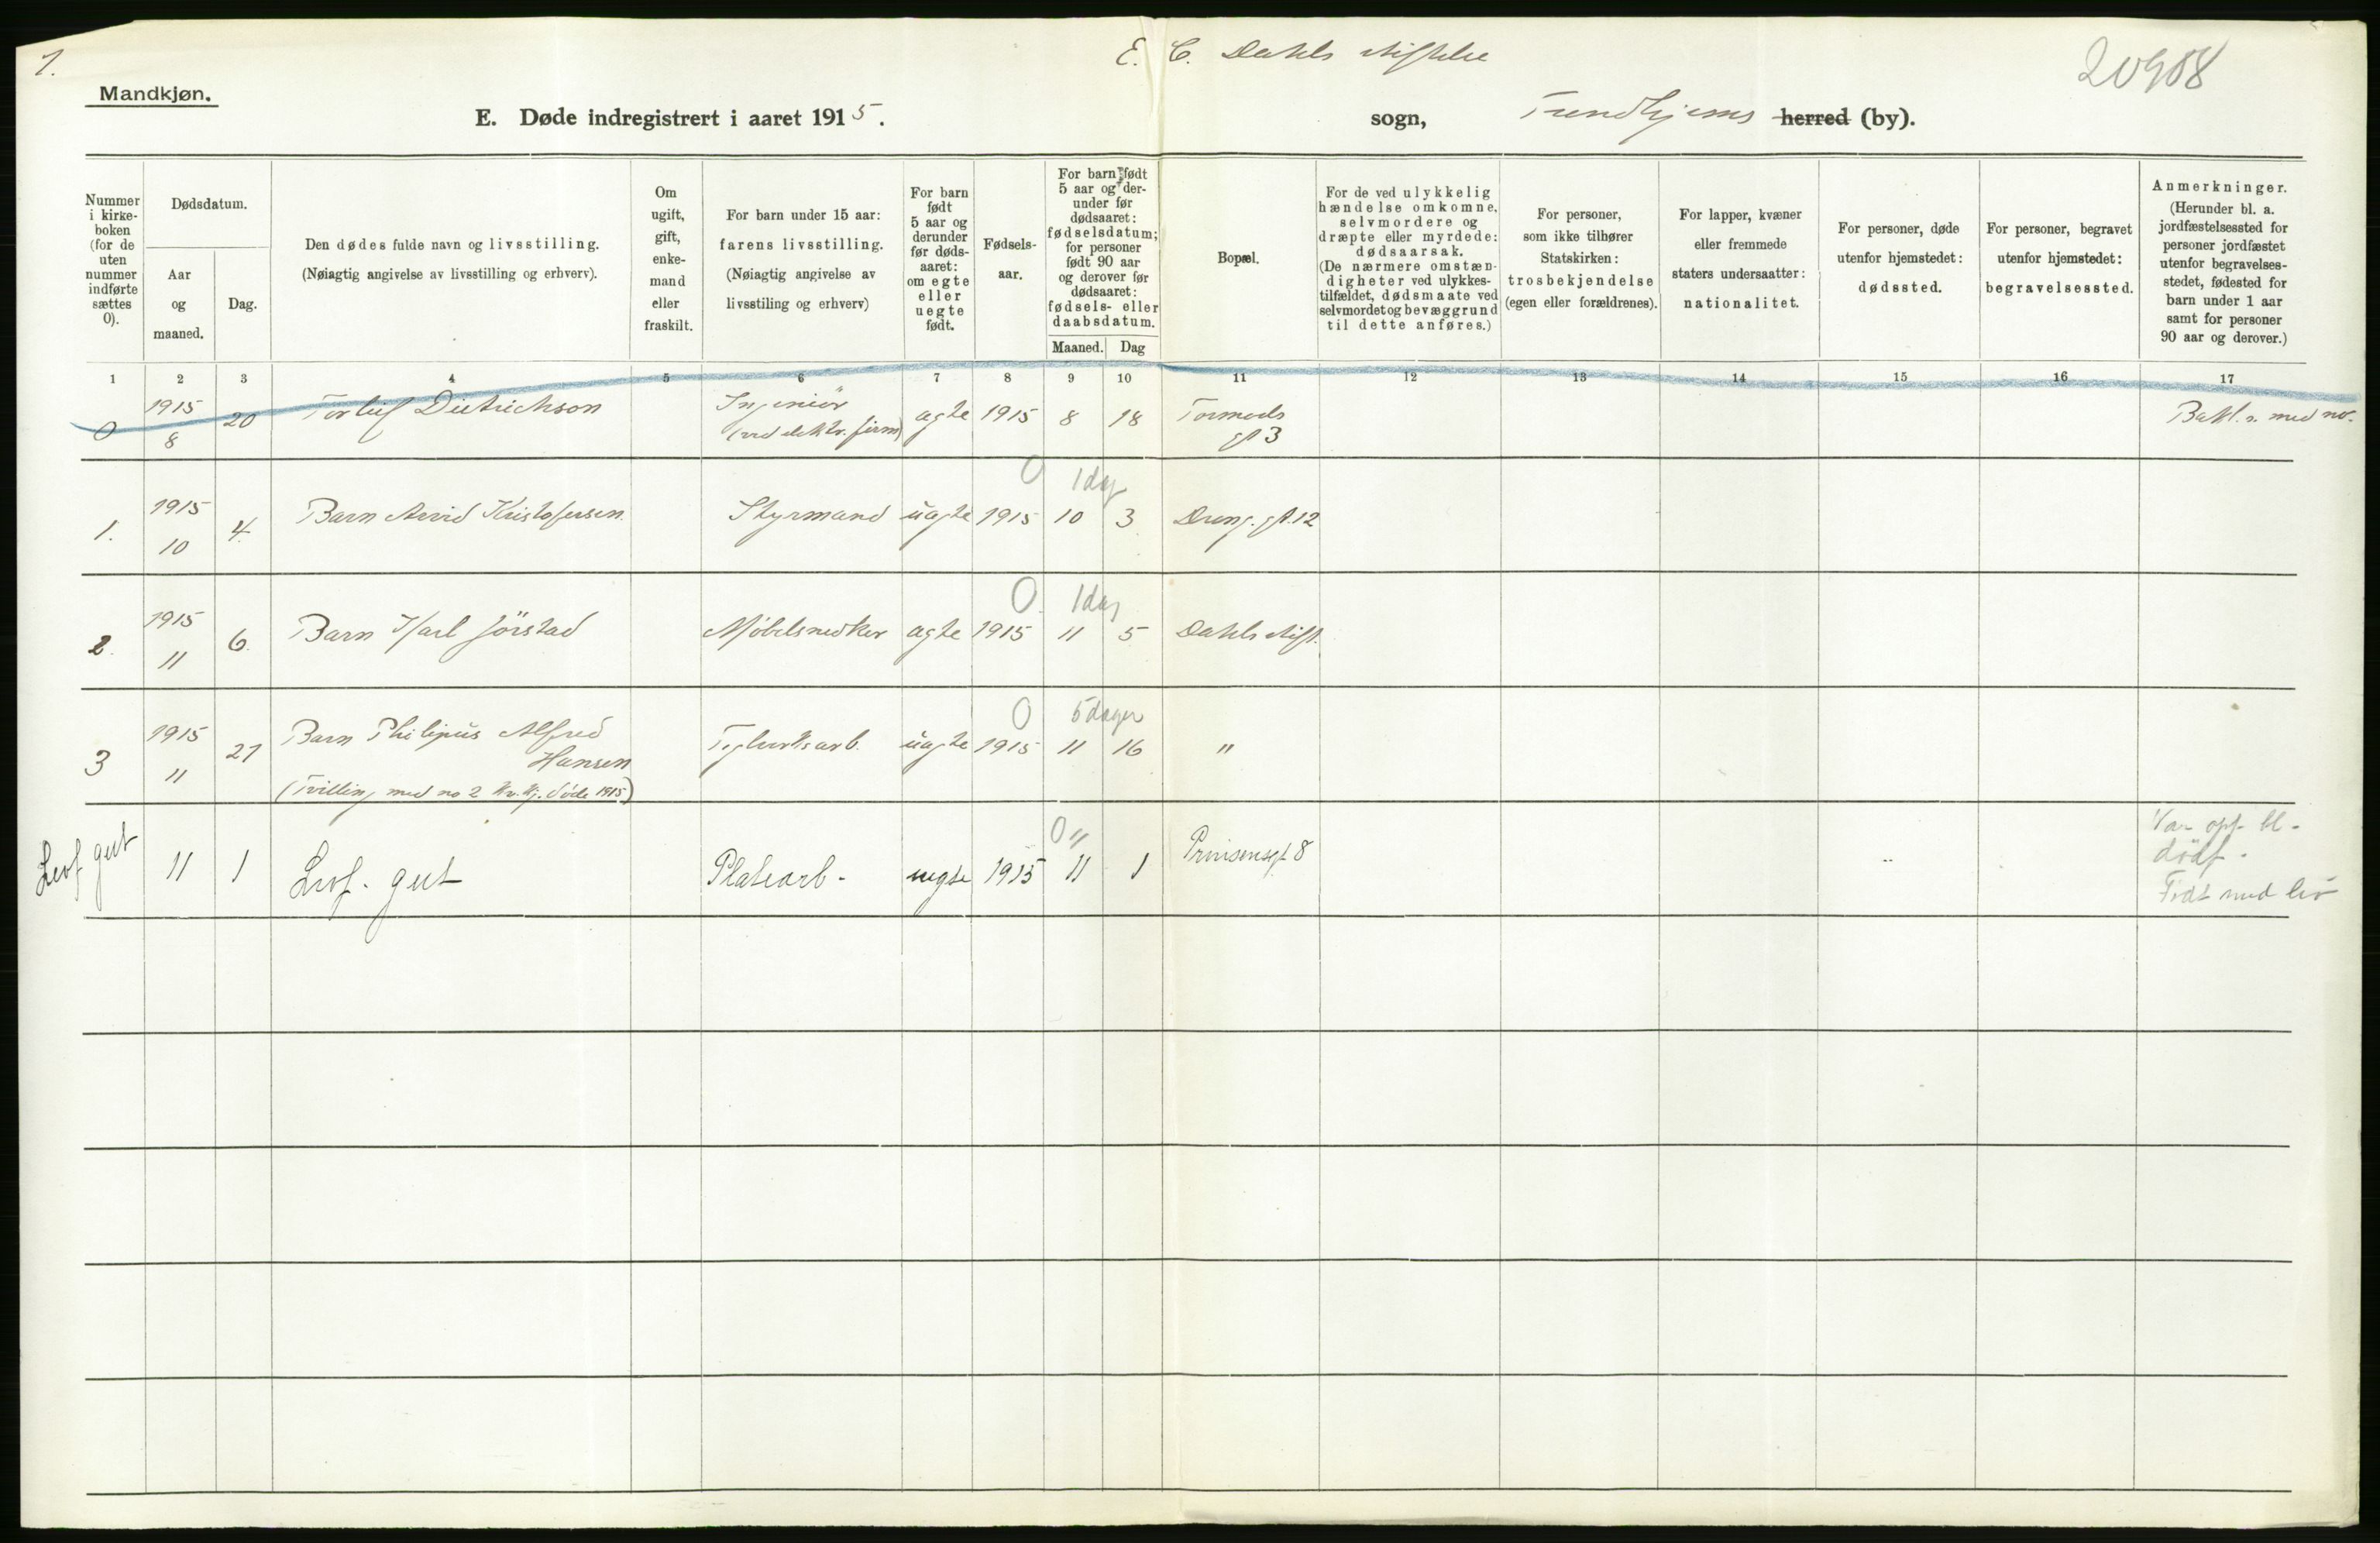 1.
E. C. Dahls Stiftelse
20908
Mandkjøn.
E. Døde indregistrert i aaret 1915.
sogn, Trondhjems herred (by).
Nummer i kirke- boken (for de uten nummer indførte sættes 0).
Dødsdatum.
Aar og maaned.
Dag.
Den dødes fulde navn og livsstilling.
(Nøiagtig angivelse av livsstilling og erhverv).
Om ugift, gift, enke- mand eller fraskilt.
For barn under 15 aar:
farens livsstilling.
(Nøiagtig angivelse av
livsstiling og erhverv)
For barn født 5 aar og derunder før døds- aaret: om egte eller uegte født.
Fødsels- aar.
For barn født 5 aar og der- under før dødsaaret: fødselsdatum; for personer født 90 aar og derover før dødsaaret: fødsels- eller daabsdatum.
Maaned. Dag
Bopæl.
For de ved ulykkelig hændelse omkomne, selvmordere og dræpte eller myrdede: dødsaarsak. (De nærmere omstæn- digheter ved ulykkes- tilfældet, dødsmaate ved selvmordet og bevæggrund til dette anføres.)
For personer, som ikke tilhører Statskirken: trosbekjendelse (egen eller forældrenes).
For lapper, kvæner eller fremmede staters undersaatter: nationalitet.
For personer, døde utenfor hjemstedet: dødssted.
For personer, begravet utenfor hjemstedet: begravelsessted.
Anmerkninger. (Herunder bl. a. jordfæstelsessted for personer jordfæstet utenfor begravelses- stedet, fødested for barn under 1 aar samt for personer 90 aar og derover.)
1 2 3 4 5 6 7 8 9 10 11 12 13 14 15 16 17
0 1915 8 20 Torleif Dietrichson Ingeniør (ved elektr. firm) ægte 1915 8 18 Tormods gt 3 Bakl. s. med no.
0 1 dag
1. 1915 10 4. Barn Arvid Kristofersen Styrmand uægte 1915 10 3. Dron. gt. 12
0 1 dag
2. 1915 11 6. Barn Karl Jörstad Møbelsnedker ægte 1915 11 5 Dahls Stift.
0 5 dager
3 1915 11 21 Barn Philipus Alfred Hansen Teglverksarb. uægte 1915 11 16 "
(Tvilling med no 2 Kv. kj. døde 1915)
0 "
Levf gut 11 1 Levf. gut Platearb. uegte 1915 11 1 Prinsensgt 8 Var opf. bl. dödf. Född med liv